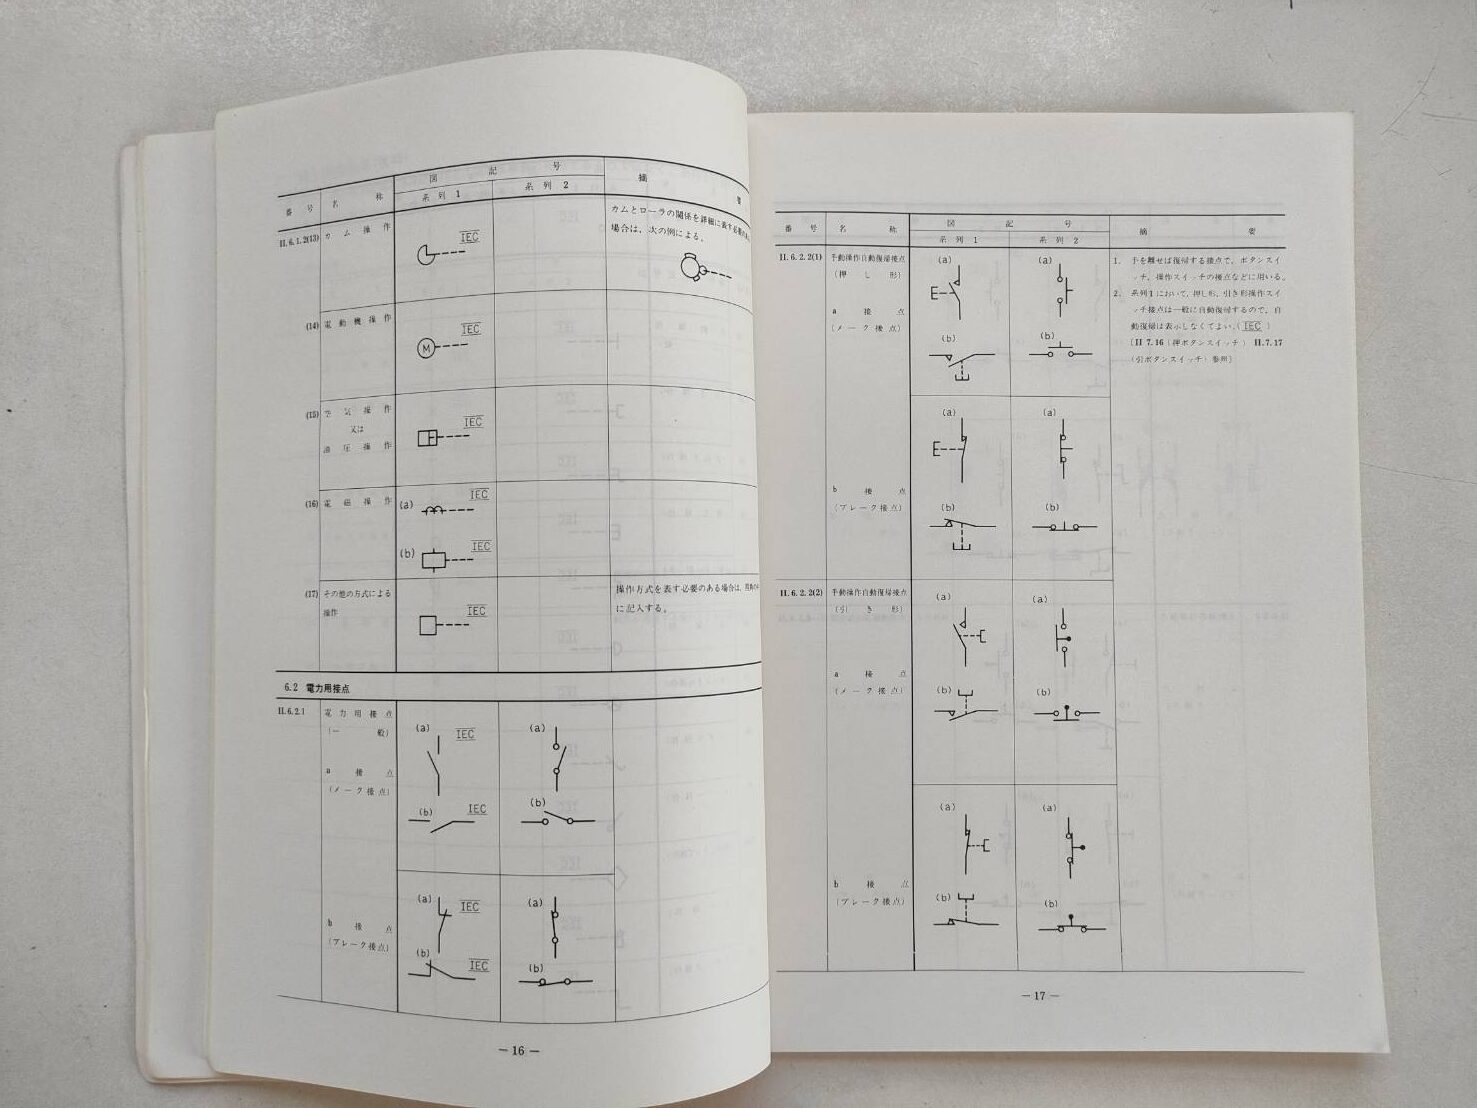 番号 名称 図記号 摘要
系列 1 系列 2
II.6.1.2(13) カム操作 IEC カムとローラの関係を詳細に表す必要の
場合は、次の例による。
(14) 電動機操作 IEC
M
(15) 空気操作 IEC
又は
油圧操作
(16) 電磁操作 (a) IEC
(b) IEC
(17) その他の方式による IEC 操作方式を表す必要のある場合は、
操作 に記入する。
6.2 電力用接点
II.6.2.1 電力用接点
(一般) (a) IEC (a)
a 接点
(メーク接点) (b) IEC (b)
(a) IEC (a)
b 接点
(ブレーク接点) (b) IEC (b)
— 16 —
番号 名称 図記号 摘要
系列 1 系列 2
II.6.2.2(1) 手動操作自動復帰接点 (a) (a) 1. 手を離せば復帰する接点で、ボタンスイ
(押し形) ッチ、操作スイッチの接点などに用いる。
2. 系列1において、押し形、引き形操作スイ
a 接点 ッチ接点は一般に自動復帰するので、自
(メーク接点) (b) (b) 動復帰は表示しなくてよい。(IEC)
〔II 7.16(押ボタンスイッチ) II.7.17
(引ボタンスイッチ)参照〕
(a) (a)
b 接点
(ブレーク接点) (b) (b)
II.6.2.2(2) 手動操作自動復帰接点 (a) (a)
(引き形)
a 接点
(メーク接点) (b) (b)
(a) (a)
b 接点
(ブレーク接点) (b) (b)
— 17 —